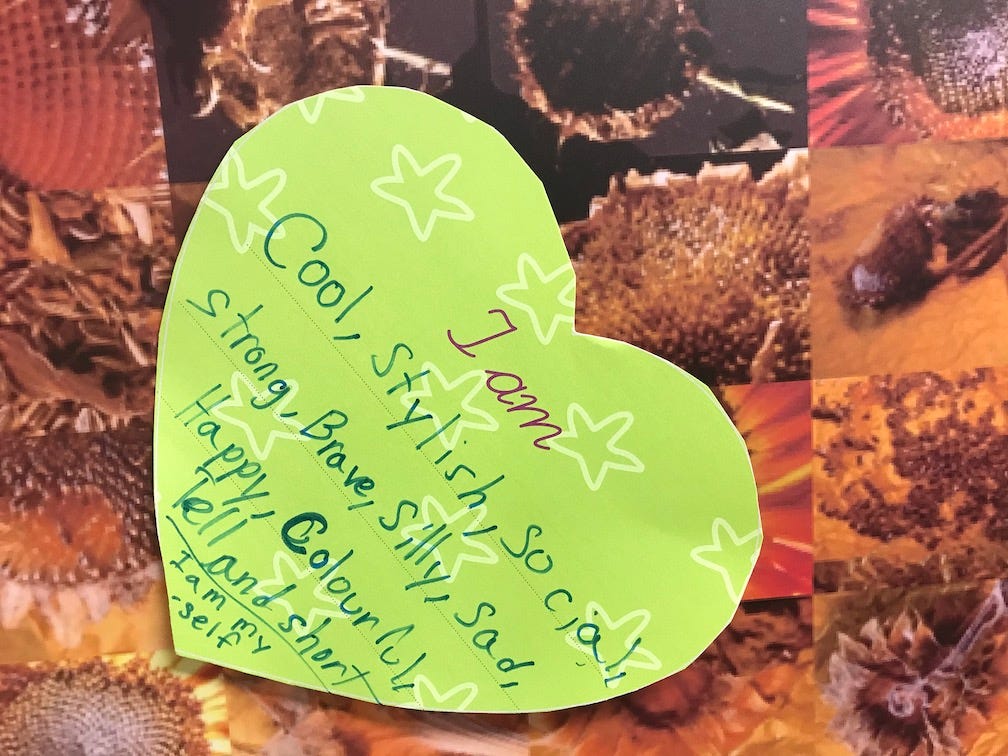 I am
Cool, Stylish, Social,
strong, Brave, Silly, Sad,
Happy, Colourful,
Tell and short
I am my
-self